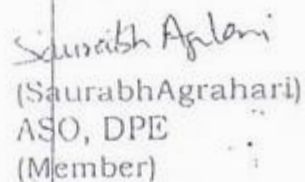 Saurabh Agrahari
(SaurabhAgrahari)
ASO, DPE
(Member)